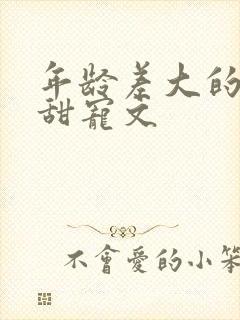 年龄差大的
甜寵文
不會愛的小笨